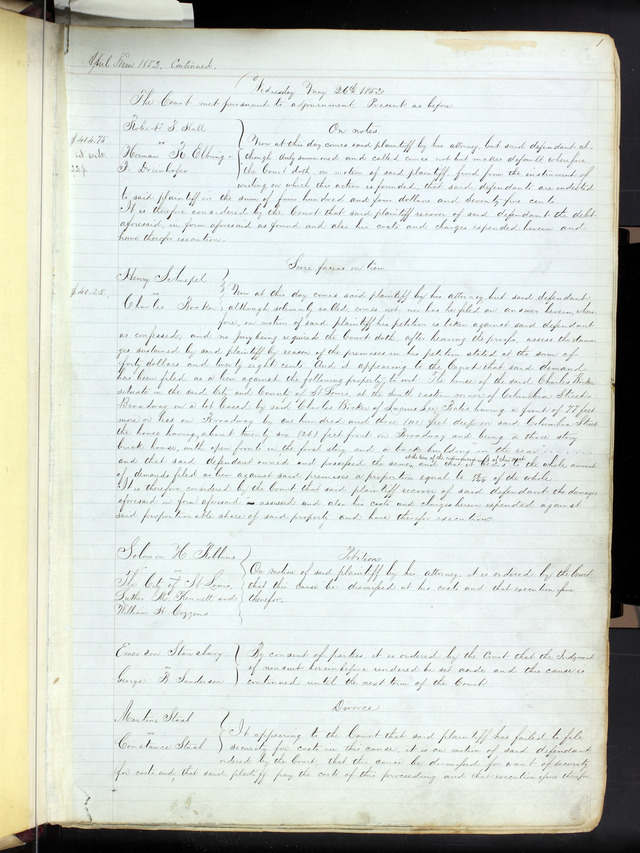 1
April Term 1852. Continued.
Wednesday May 26th 1852
The Court met pursuant to adjournment. Present as before
Robert J. Hall
vs
Herman H.
On notes
$404.75
Now at this day comes said plaintiff by his attorney, but said defendants al-
though duly summoned and called comes not but makes default wherefore
the Court doth on motion of said plaintiff find from the instrument of
writing on which this action is founded, that said defendants are indebted
to said plaintiff in the sum of four hundred and four dollars and Seventy five cents
It is therefore considered by the Court that said plaintiff recover of said defendant the debt
aforesaid, in form aforesaid as found and also his costs and charges expended herein and
have therefor execution.
Scire facias on lien
Henry
vs
Charles Boeker
$40.28.
Now at this day comes said plaintiff by his attorney but said defendant,
although solemnly called comes not nor has he filed an answer herein, where
fore, on motion of said plaintiff his petition is taken against said defendant
as confessed, and no jury being required the Court doth after hearing the proofs, assess the dama-
ges sustained by said plaintiff by reason of the premises in his petition stated at the sum of
forty dollars and twenty eight cents. And it appearing to the Court that said demand
has been filed as a lien against the following property to wit. The house of the said Charles Boeker
situate in the said City and County of St Louis at the south eastern corner of Columbia Street &
Broadway on a lot leased by said Charles Boeker of having a front of 77 feet
more or less on Broadway by one hundred and three feet deep on said Columbia Street
the house having about twenty six (26) feet front on Broadway and being a three story
brick house, with open fronts in the first story and a back building in the rear
and that said defendant owned and possessed the same, and that of the whole amount
of demands filed as lien against said premises a proportion equal to of the whole
It is therefore considered by the Court that said plaintiff recover of said defendant the damages
aforesaid in form aforesaid assessed and also his costs and charges herein expended against
said proportionable shares of said property and have therefor execution
Solomon H. Robbins
vs
The City of St Louis
Luther M. Kennett and
William H. Cozzens
Petition
On motion of said plaintiff by his attorney, it is ordered by the Court
that this cause be dismissed at his costs and that execution issue
therefor.
Emerson Stansbury
vs
George H. Sanderson
By consent of parties it is ordered by the Court that the Judgment
of nonsuit herein before rendered be set aside and this cause is
continued until the next term of the Court
Divorce
Martin Staal
vs
Constance Staal
It appearing to the Court that said plaintiff has failed to file
security for costs in this cause, it is on motion of said defendant
ordered by the Court, that this cause be dismissed for want of security
for costs, and, that said plaintiff pay the costs of this proceeding and that execution issue therefor